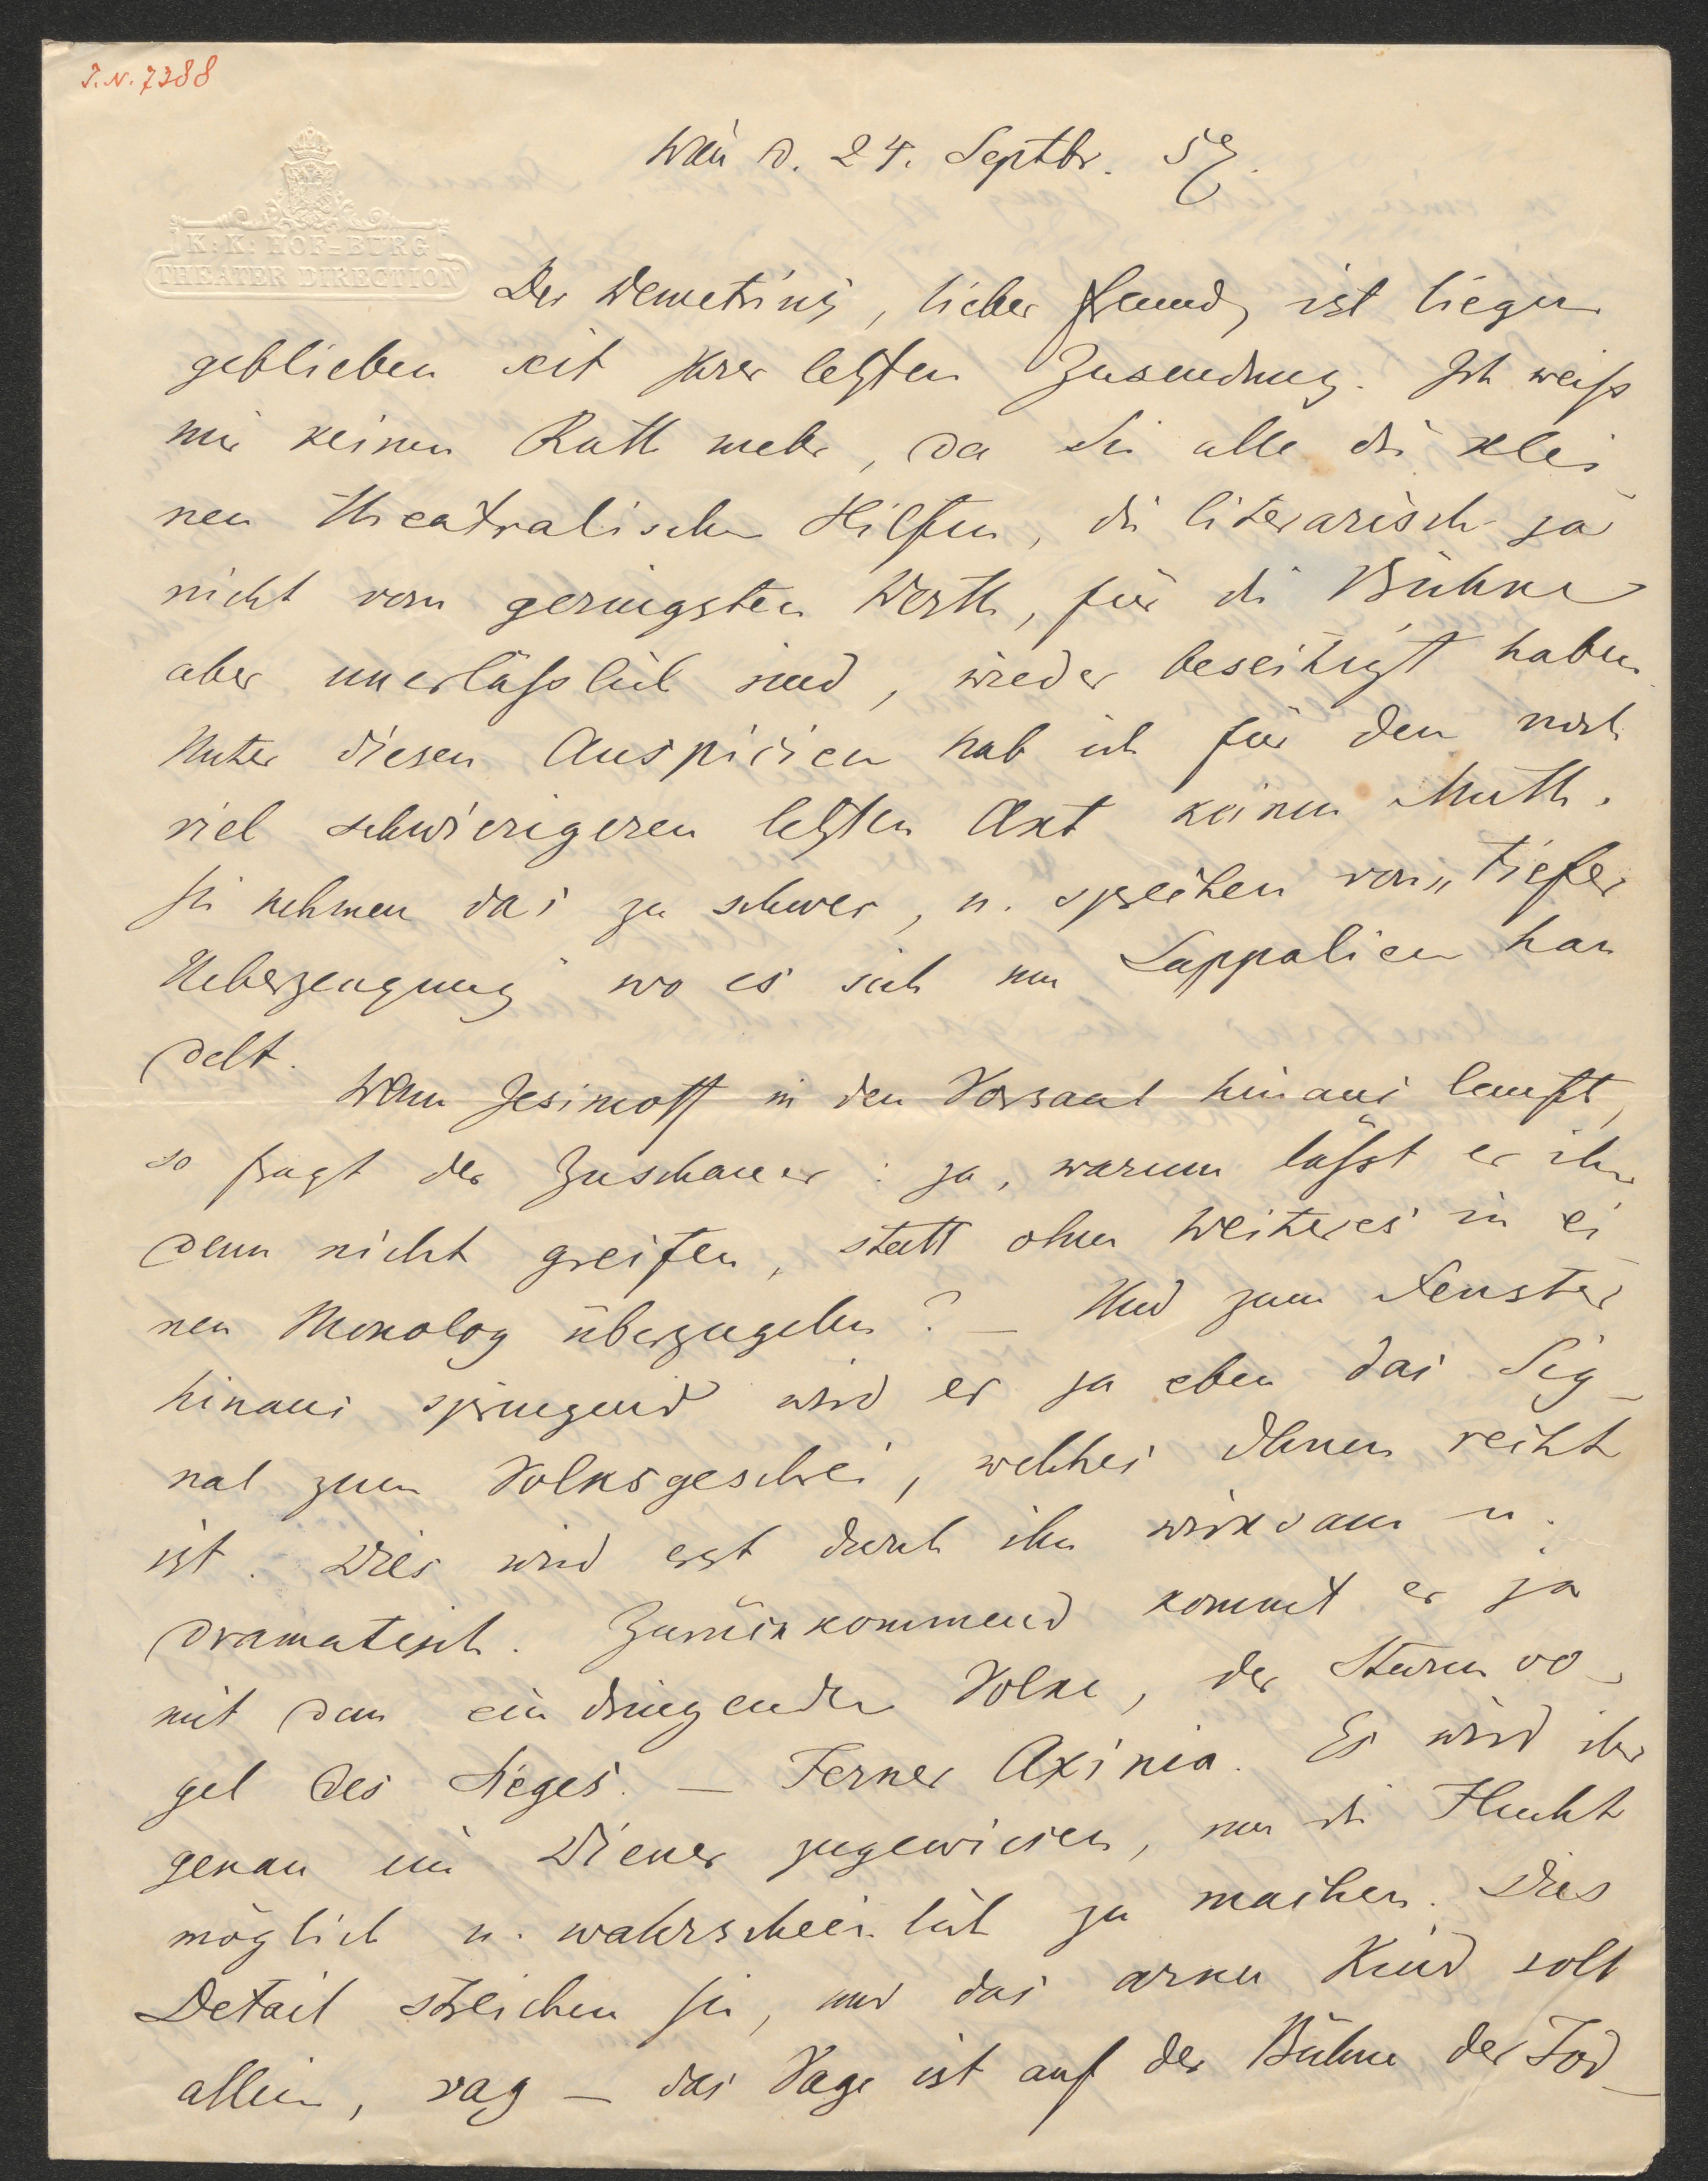 I.N. 7388
Wien d. 24. Septbr. 57.
K: K: HOF-BURG
THEATER DIRECTION
Der Demetrius, lieber Freund, ist liegen
geblieben seit Ihrer letzten Zusendung. Ich weiss
mir keinen Rath mehr, da Sie alle die klei
nen theatralischen Hilfen, die literarisch ja
nicht vom geringsten Werth, für die Bühne
aber unerlässlich sind, wieder beseitigt haben.
Unter diesen Auspicien hab ich für den noch
viel schwierigeren letzten Akt keinen Muth.
Sie nehmen das zu schwer, u. sprechen von „tiefer
Ueberzeugung" wo es sich um Lappalien han
delt.
Wenn Jesimoff in den Vorsaal hinaus lauft,
so fragt der Zuschauer: ja, warum lässt er ihn
denn nicht greifen, statt ohne Weiteres in ei
nen Monolog überzugehen? – Und zum Fenster
hinaus springend wird er ja eben das Sig-
nal zum Volksgeschrei, welches Ihnen recht
ist. Dies wird erst durch ihn wirksam u.
dramatisch. Zurückkommend kommt er ja
mit dem eindringenden Volke, der Sturmvo-
gel des Sieges. – Ferner Axinia. Es wird ihr
genau ein Diener zugewiesen, um die Flucht
möglich u. wahrscheinlich zu machen. Dies
Detail streichen Sie, und das arme Kind soll
allein, vag – das Vage ist auf der Bühne der Tod_